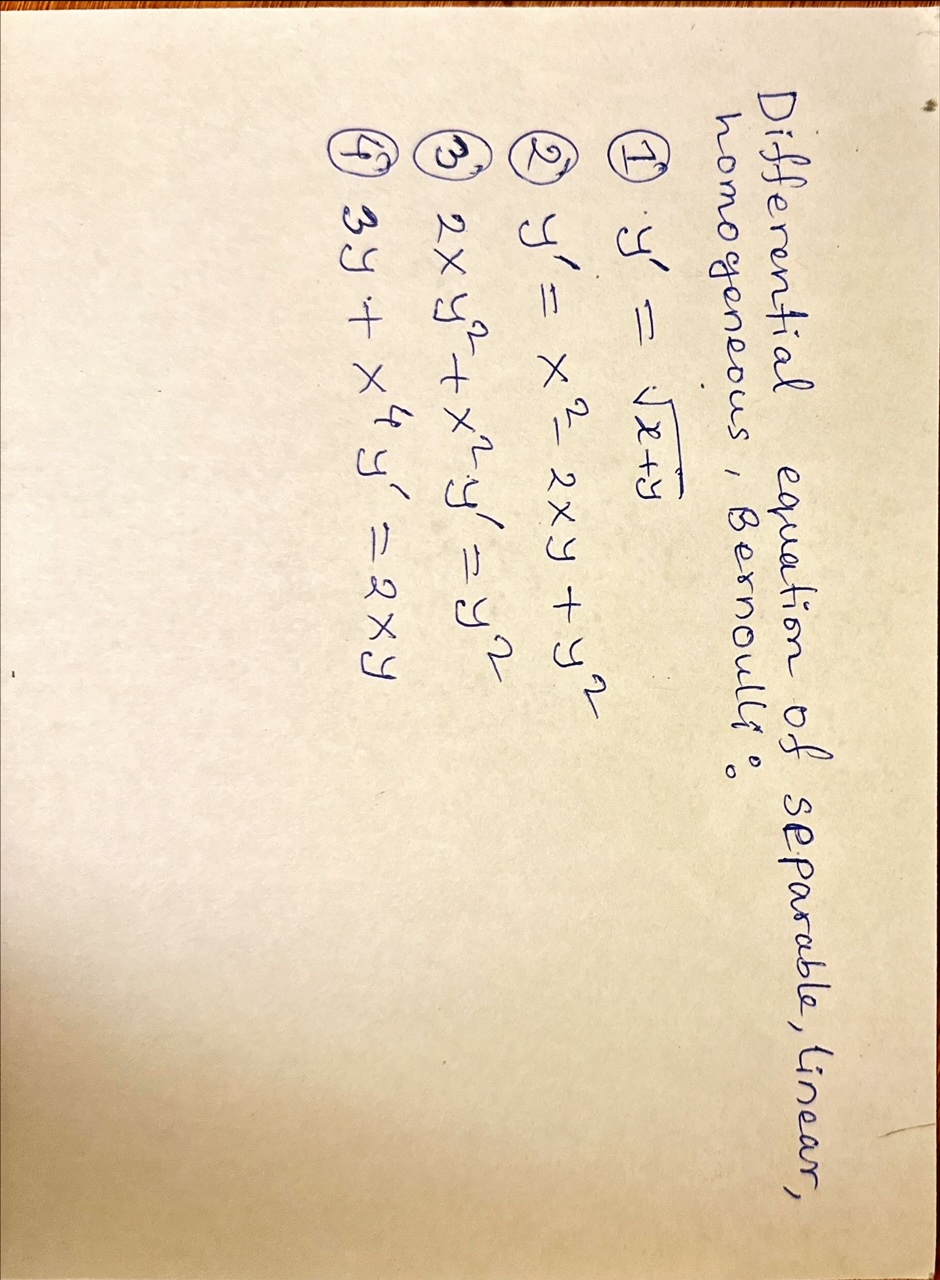 Differential equation of separable, linear,
homogeneous, Bernoulli:
① y' = √(x+y)
② y' = x² - 2xy + y²
③ 2xy² + x²y' = y²
④ 3y + x⁴y' = 2xy